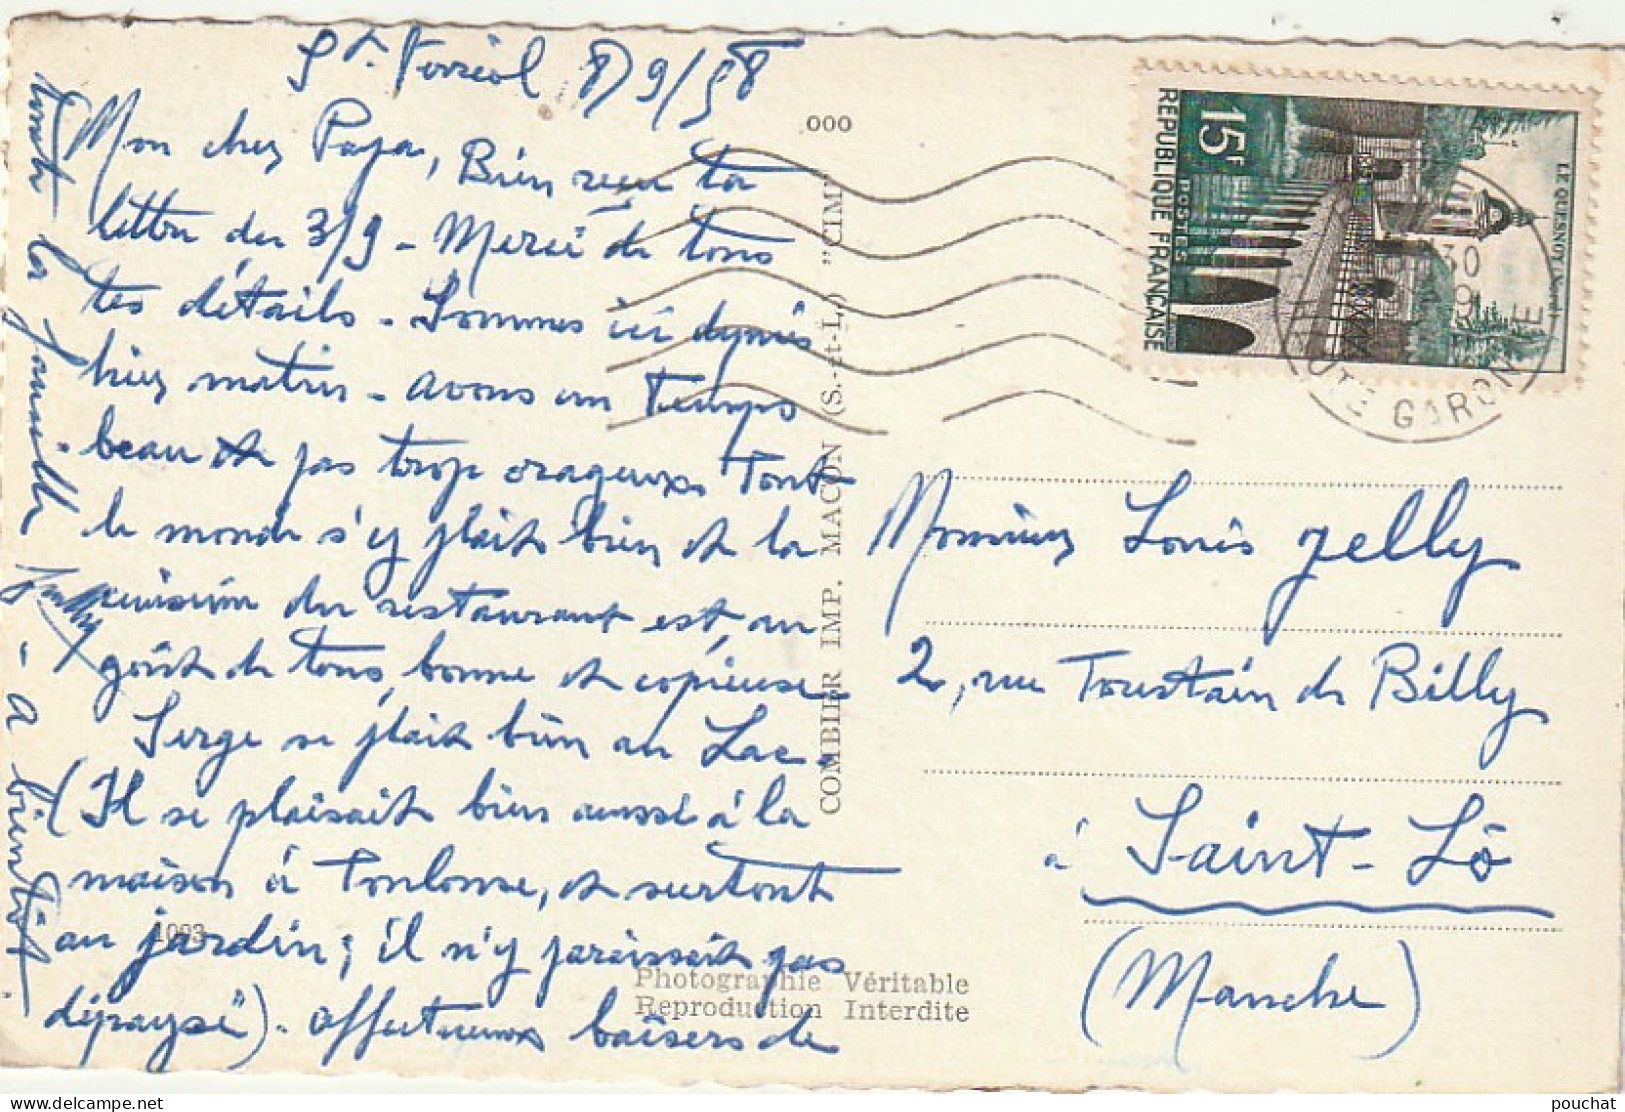 St. Ferréol 8/9/58
Mon cher Papa, Bien reçu ta
lettre du 3/9 - Merci de tous
tes détails - Sommes ici depuis
hier matin - avons un temps
beau et pas trop orageux. Tout
le monde s'y plaît bien et la
cuisine du restaurant est, au
goût de tous, bonne et copieuse
Serge se plait bien au Lac.
(Il se plaisait bien aussi à la
maison à Toulouse, et surtout
au jardin; il n'y paraissait pas
dépaysé) - affectueux baisers de
toute la famille
- A bientôt.
1093
000
COMBIER IMP. MACON (S.-et-L.) "CIM"
Photographie Véritable
Reproduction Interdite
RÉPUBLIQUE FRANÇAISE
POSTES
15F
LE QUESNOY (Nord)
30
9
HAUTE GARONNE
Monsieur Louis Jelly
2, rue Toustain de Billy
à Saint-Lô
(Manche)
pouchat